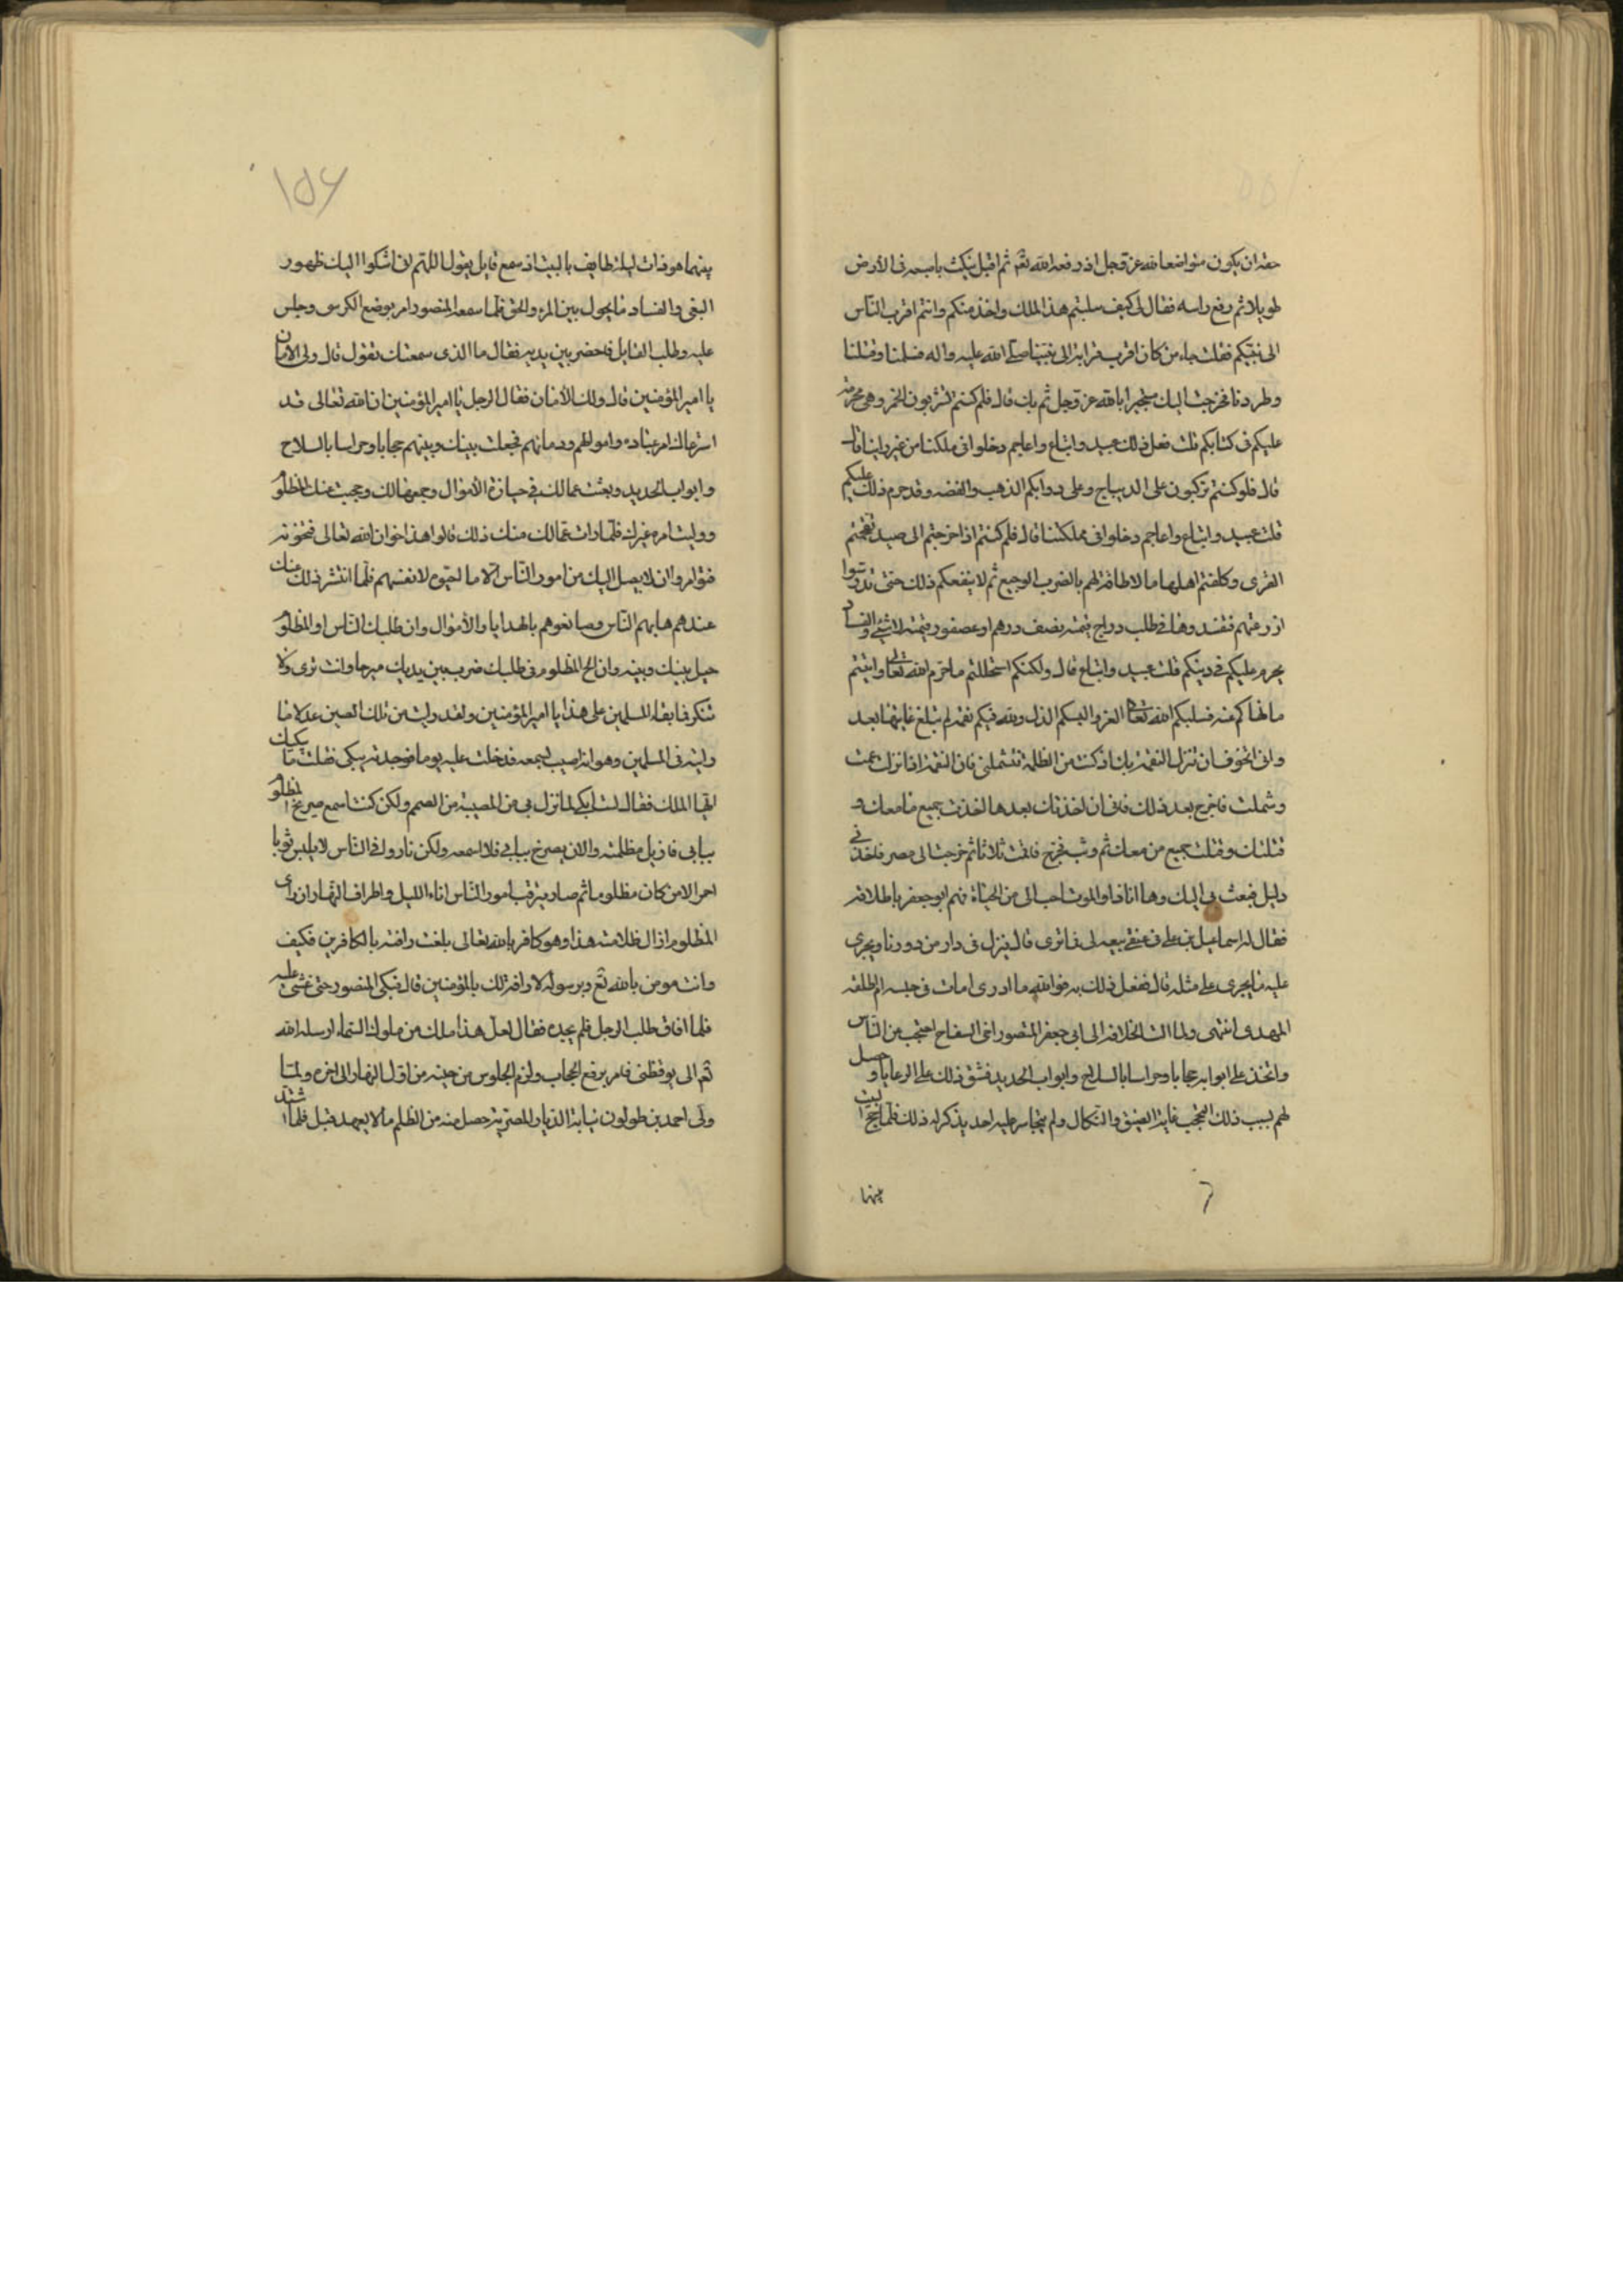 حقه ان يكون متواضعا لله عز وجل اذ رفعه الله تعم ثم اقبل ينكث باصبعه فى الأرض
طويلا ثم رفع راسه فقال لى كيف سلبتم هذا الملك واخذ منكم وانتم اقرب النّاس
الى نبيّكم فقلت جاء من كان اقرب قرابة الى نبيّنا صلّى الله عليه واله فسلبنا وقتلنا
وطردنا فخرجت اليك مستجيرا بالله عز وجل ثم بك قال فلم كنتم تشربون الخمر وهى محرمة
عليكم فى كتابكم قلت فعل ذلك عبيد واتباع واعاجم دخلوا فى ملكنا من غير راينا قال
قال فلم كنتم تركبون على الديباج وعلى دوابكم الذهب والفضه وقد حرم ذلك عليكم
قلت عبيد واتباع واعاجم دخلوا فى مملكتنا قال فلم كنتم اذا خرجتم الى صيد تقحمتم
القرى وكلفتم اهلها ما لا طاقة لهم بالضرب الوجيع ثم لا ينفعكم ذلك حتى تدوسوا
زرعتهم فتفسدوها فى طلب دراج قيمته نصف درهم او عصفور قيمته لا شئ والفساد
يحرم عليكم فى دينكم قلت عبيد واتباع قال ولكنكم استحللتم ما حرم الله تعالى واتيتم
ما نهاكم عنه فسلبكم الله تعالى العز والبسكم الذل ولله فيكم نقمة لم تبلغ غايتها بعد
وانى اتخوف ان تنزل النقمة بك اذ كنت من الظلمة فتشملنى فان النقمة اذا نزلت عمت
وشملت فاخرج بعد ذلك فانى ان اخذتك بعدها اخذت جميع ما معك و
قتلتك وقتلت جميع من معك ثم وثب فخرج فاقمت ثلاثا ثم خرجت الى مصر فاخذنى
دليل فبعث بى اليك وها انا ذا والموت احب الى من الحياة فهم ابو جعفر باطلاقه
فقال له اسماعيل بن على فى عنقى بيعه لى فما ترى قال ينزل فى دار من دورنا ويجرى
عليه ما يجرى على مثله قال ففعل ذلك به فوالله ما ادرى امات فى حبسه ام اطلقه
المهدى انتهى ولما الت الخلافة الى ابى جعفر المنصور اخى السفاح احتجب من النّاس
واتخذ على ابوابه حجابا وحراسا بالسلاح وابواب الحديد فشق ذلك على الرعايا وحصل
لهم بسبب ذلك التحجب غاية الضيق والنّكال ولم يتجاسر عليه احد يذكر له ذلك فلمّا حج البيت
بينما
بينما هو ذات ليلة طايف بالبيت اذ سمع قايل يقول اللهم انى اشكوا اليك ظهور
البغى والفساد وما يحول بين المرء والحق فلمّا سمعه المنصور امر بوضع الكرسى وجلس
عليه وطلب القايل فاحضر بين يديه فقال ما الذى سمعتك تقول قال ولى الأمان
يا امير المؤمنين قال ولك الأمان فقال الرجل يا امير المؤمنين ان الله تعالى قد
استرعاك امر عباده واموالهم ودمائهم فجعلت بينك وبينهم حجابا وحراسا بالسلاح
وابواب الحديد وبعثت عمالك فى حيازة الأموال وجمعها لك وحجبت عنك المظلوم
ووليت امره غيرك فلمّا رات عمّالك منك ذلك قالوا هذا خوان الله تعالى فنخونه
فتوامروا ان لا يصل اليك من امور النّاس الّا ما احبوه لانفسهم فلمّا انتشر ذلك منك
عندهم هابهم النّاس وصانعوهم بالهدايا والأموال وان طلبك النّاس او المظلوم
حيل بينك وبينه وان الح المظلوم فى طلبك ضرب بين يديك مبرحا وانت ترى ولا
تنكر فما بقاء المسلمين على هذا يا امير المؤمنين ولقد وليت من تلك الصين عدلا ما
وليته فى المسلمين وهو انه اصيب بسمعه فدخلت عليه يوما فوجدته يبكى فقلت ما يبكيك
ايّها الملك فقال لست ابكى لما نزل بى من المصيبة من الصمم ولكن كنت اسمع صريخ المظلوم
ببابى فازيل مظلمته والان يصرخ ببابى فلا اسمعه ولكن نادوا فى النّاس لا يلبس ثوبا
احمر الا من كان مظلوما ثم صار يترقب امور النّاس اناء الليل واطراف النّهار ان راى
المظلوم ازال ظلامته هذا وهو كافر بالله تعالى بلغت رافته بالكافرين فكيف
وانت مومن بالله تعم وبرسوله لا رافة لك بالمؤمنين قال فبكى المنصور حتى غشى عليه
فلما افاق طلب الرجل فلم يجده فقال لعل هذا ملك من ملوك السّماء ارسله الله
تعم الى يوقظنى فامر برفع الحجاب ولزم الجلوس من حينه من اوّل النّهار الى اخره ولمّا
ولّى احمد بن طولون نيابة الديار المصرّية حصل منه من الظلم ما لا يعهد قبل فلما اشتد
١٥٦